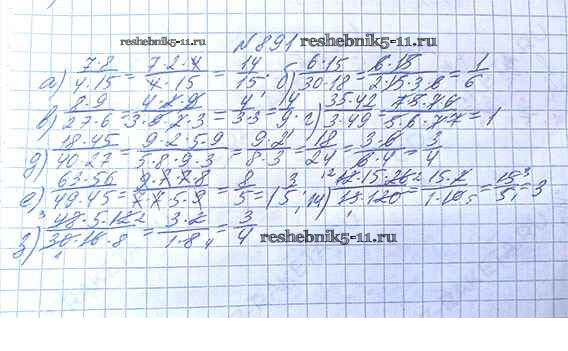 №891
reshebnik5-11.ru
а) 7·8/4·15 = 7·2·4/4·15 = 14/15; б) 6·15/30·18 = 6·15/2·15·3·6 = 1/6
в) 8·9/27·6 = 4·2·9/3·9·2·3 = 4/3·3 = 4/9 г) 35·42/3·49 = 7·5·7·6/5·6·7·7 = 1
д) 18·45/40·27 = 9·2·5·9/5·8·9·3 = 9·2/8·3 = 18/24 = 3·6/6·4 = 3/4
е) 63·56/49·45 = 9·7·7·8/7·7·5·9 = 8/5 = 1 3/5; ж) 12·15·26/13·120 = 15·2/1·10 = 15/5 = 3
з) 48·5·12/30·16·8 = 3·2/1·8 = 3/4
reshebnik5-11.ru